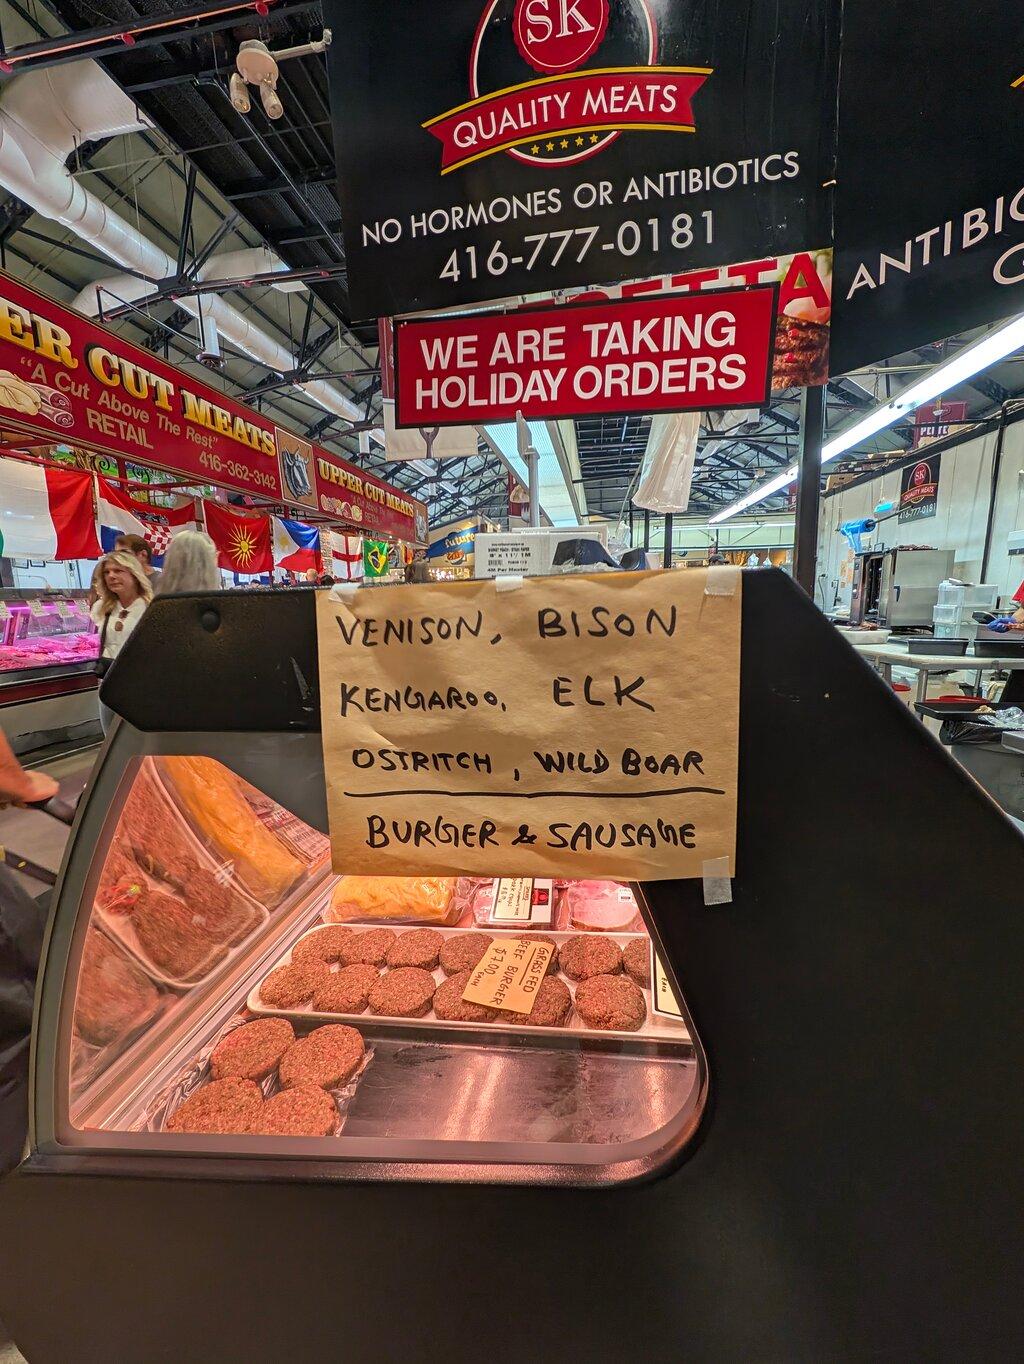 SK
QUALITY MEATS
NO HORMONES OR ANTIBIOTICS
416-777-0181
WE ARE TAKING
HOLIDAY ORDERS
ER CUT MEATS
"A Cut Above The Rest"
RETAIL
416-362-3142
UPPER CUT MEATS
RETAIL
VENISON, BISON
KENGAROO, ELK
OSTRITCH, WILD BOAR
BURGER & SAUSAGE
GRASS FED
BEEF BURGER
$7.00
EACH
QUALITY MEATS
416-777-0181